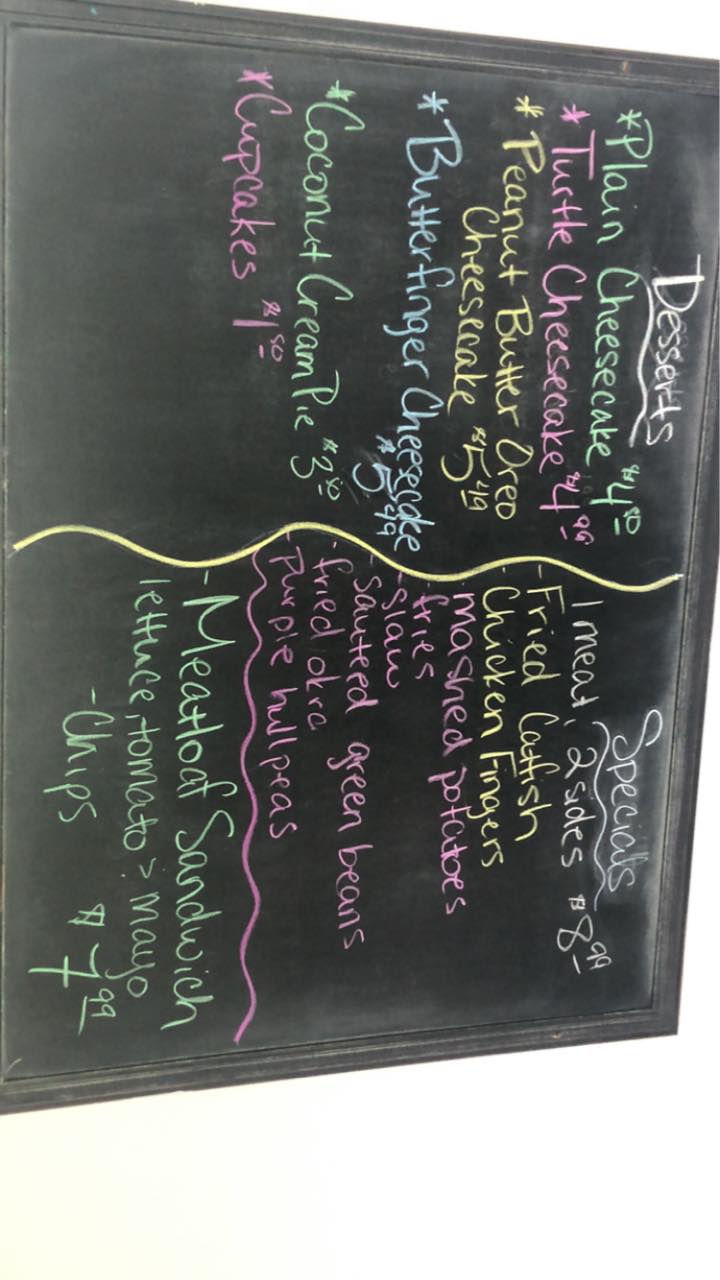 Desserts
*Plain Cheesecake $4.50
*Turtle Cheesecake $4.99
*Peanut Butter Oreo
Cheesecake $5.49
*Butterfinger Cheesecake
$5.49
*Coconut Cream Pie $3.50
*Cupcakes $1.50
Specials
1 meat, 2 sides $8.99
- Fried Catfish
- Chicken Fingers
- mashed potatoes
- fries
- slaw
- sauteed green beans
- fried okra
- purple hull peas
- Meatloaf Sandwich
lettuce, tomato > mayo
- Chips
$7.99